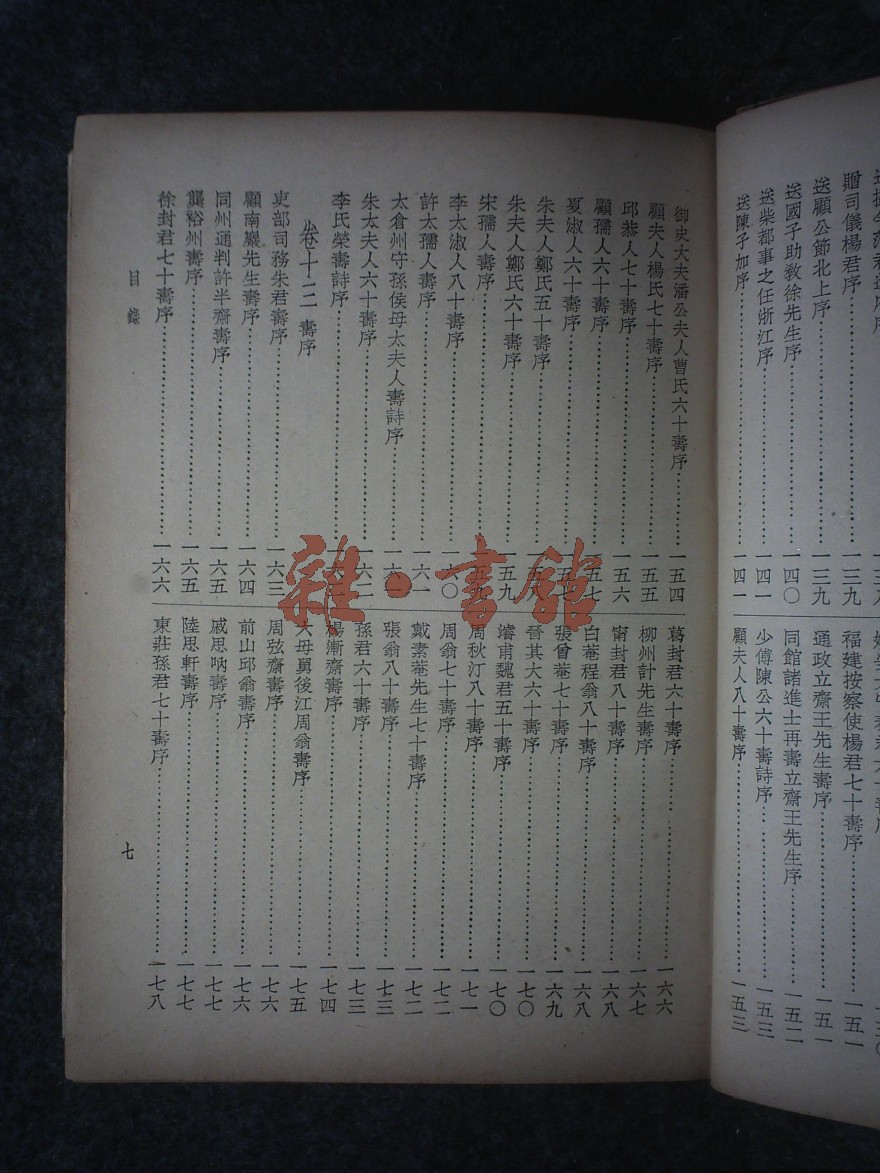 贈司儀楊君序……一三九
送顧公節北上序……一三九
送國子助教徐先生序……一四〇
送柴都事之任浙江序……一四一
送陳子加序……一四一
福建按察使楊君七十壽序……一五一
通政立齋王先生壽序……一五一
同館諸進士再壽立齋王先生序……一五二
少傅陳公六十壽詩序……一五三
顧夫人八十壽序……一五三
御史大夫潘公夫人曹氏六十壽序……一五四
顧夫人楊氏七十壽序……一五五
邱恭人七十壽序……一五六
顧孺人六十壽序……一五七
夏淑人六十壽序……一五七
朱夫人鄭氏五十壽序……一五八
朱夫人鄭氏六十壽序……一五九
宋孺人壽序……一五九
李太淑人八十壽序……一六〇
許太孺人壽序……一六一
太倉州守孫侯母太夫人壽詩序……一六
朱太夫人六十壽序……一六二
李氏榮壽詩序……一六
卷十三 壽序
吏部司務朱君壽序……一六三
顧南巖先生壽序……一六四
同州通判許半齋壽序……一六五
龔裕州壽序……一六五
徐封君七十壽序……一六六
葛封君六十壽序……一六六
柳州計先生壽序……一六七
甯封君八十壽序……一六八
白菴程翁八十壽序……一六八
張曾菴七十壽序……一六九
晉其大六十壽序……一七〇
濬甫魏君五十壽序……一七〇
周秋汀八十壽序……一七一
周翁七十壽序……一七二
戴素菴先生七十壽序……一七二
張翁八十壽序……一七三
孫君六十壽序……一七三
楊漸齋壽序……一七四
大母舅後江周翁壽序……一七五
周弦齋壽序……一七六
前山邱翁壽序……一七六
戚思吶壽序……一七七
陸思軒壽序……一七七
東莊孫君七十壽序……一七八
目錄
七
雜·書館